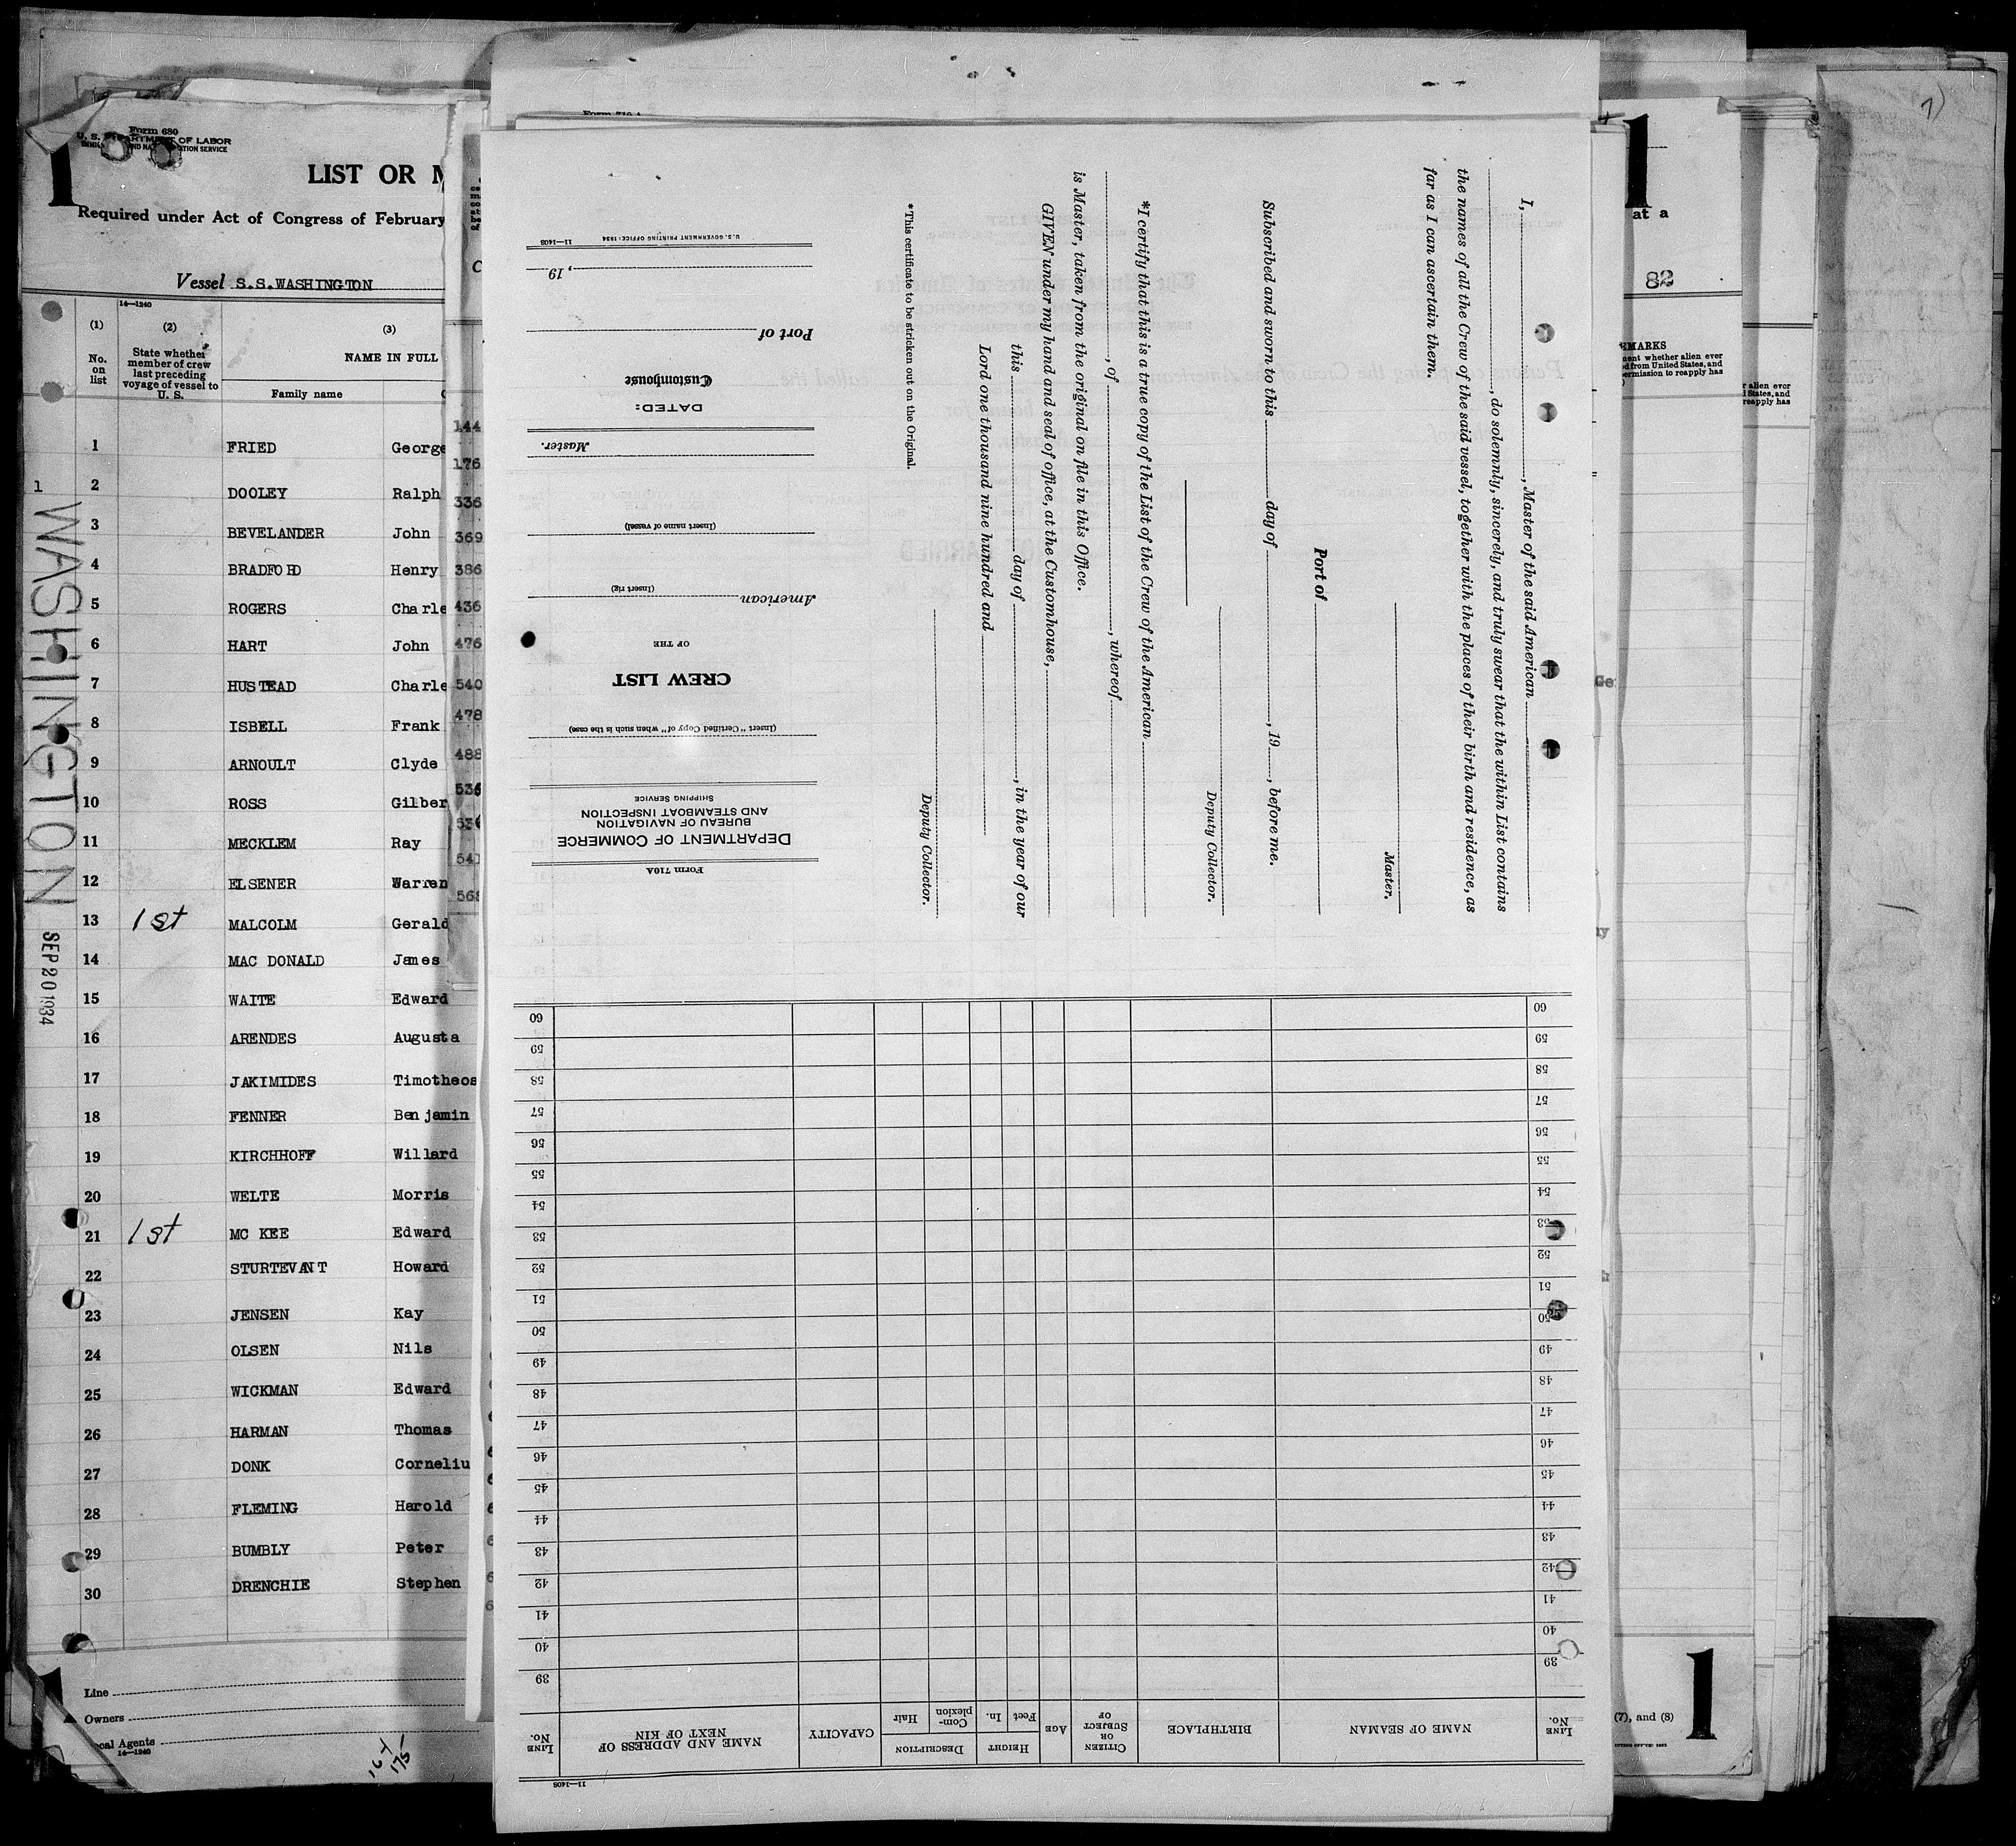 Form 680
U. S. DEPARTMENT OF LABOR
LIST OR M
Required under Act of Congress of February
Vessel S.S.WASHINGTON
14—1240
(1)
No.
on
list
(2)
State whether
member of crew
last preceding
voyage of vessel to
U. S.
(3)
NAME IN FULL
Family name
1 FRIED George
2 DOOLEY Ralph
3 BEVELANDER John
4 BRADFORD Henry
5 ROGERS Charle
6 HART John
7 HUSTEAD Charle
8 ISBELL Frank
9 ARNOULT Clyde
10 ROSS Gilber
11 MECKLEM Ray
12 ELSENER Warren
13 1st MALCOLM Gerald
14 MAC DONALD James
15 WAITE Edward
16 ARENDES Augusta
17 JAKIMIDES Timotheos
18 FENNER Benjamin
19 KIRCHHOFF Willard
20 WELTE Morris
21 1st MC KEE Edward
22 STURTEVANT Howard
23 JENSEN Kay
24 OLSEN Nils
25 WICKMAN Edward
26 HARMAN Thomas
27 DONK Corneliu
28 FLEMING Harold
29 BUMBLY Peter
30 DRENCHIE Stephen
Line
Owners
cal Agents
14—1240
16+
175
1
WASHINGTON
SEP 20 1934
144
176
336
369
386
436
476
540
478
488
536
536
541
568
I, , Master of the said American
, do solemnly, sincerely, and truly swear that the within List contains
the names of all the Crew of the said vessel, together with the places of their birth and residence, as
far as I can ascertain them.
Master.
Port of
Subscribed and sworn to this day of , 19 , before me.
Deputy Collector.
*I certify that this is a true copy of the List of the Crew of the American
, of , whereof
is Master, taken from the original on file in this Office.
GIVEN under my hand and seal of office, at the Customhouse,
this day of , in the year of our
Lord one thousand nine hundred and
Deputy Collector.
*This certificate to be stricken out on the Original.
Form 710A
DEPARTMENT OF COMMERCE
BUREAU OF NAVIGATION
AND STEAMBOAT INSPECTION
SHIPPING SERVICE
(Insert "Certified Copy of" when such is the case)
CREW LIST
OF THE
American
(Insert rig)
(Insert name of vessel)
Master.
DATED:
Customhouse
Port of
, 19
U. S. GOVERNMENT PRINTING OFFICE: 1934
11—1408
60 60
59 59
58 58
57 57
56 56
55 55
54 54
53 53
52 52
51 51
50 50
49 49
48 48
47 47
46 46
45 45
44 44
43 43
42 42
41 41
40 40
39 39
LINE
No.
NAME OF SEAMAN
BIRTHPLACE
CITIZEN
OR
SUBJECT
OF
AGE
HEIGHT
Feet
In.
DESCRIPTION
Com-
plexion
Hair
CAPACITY
NAME AND ADDRESS OF
NEXT OF KIN
LINE
No.
11—1408
1
at a
82
MARKS
ment whether alien ever
d from United States, and
ermission to reapply has
r alien ever
States, and
reapply has
Ge
(7), and (8)
1